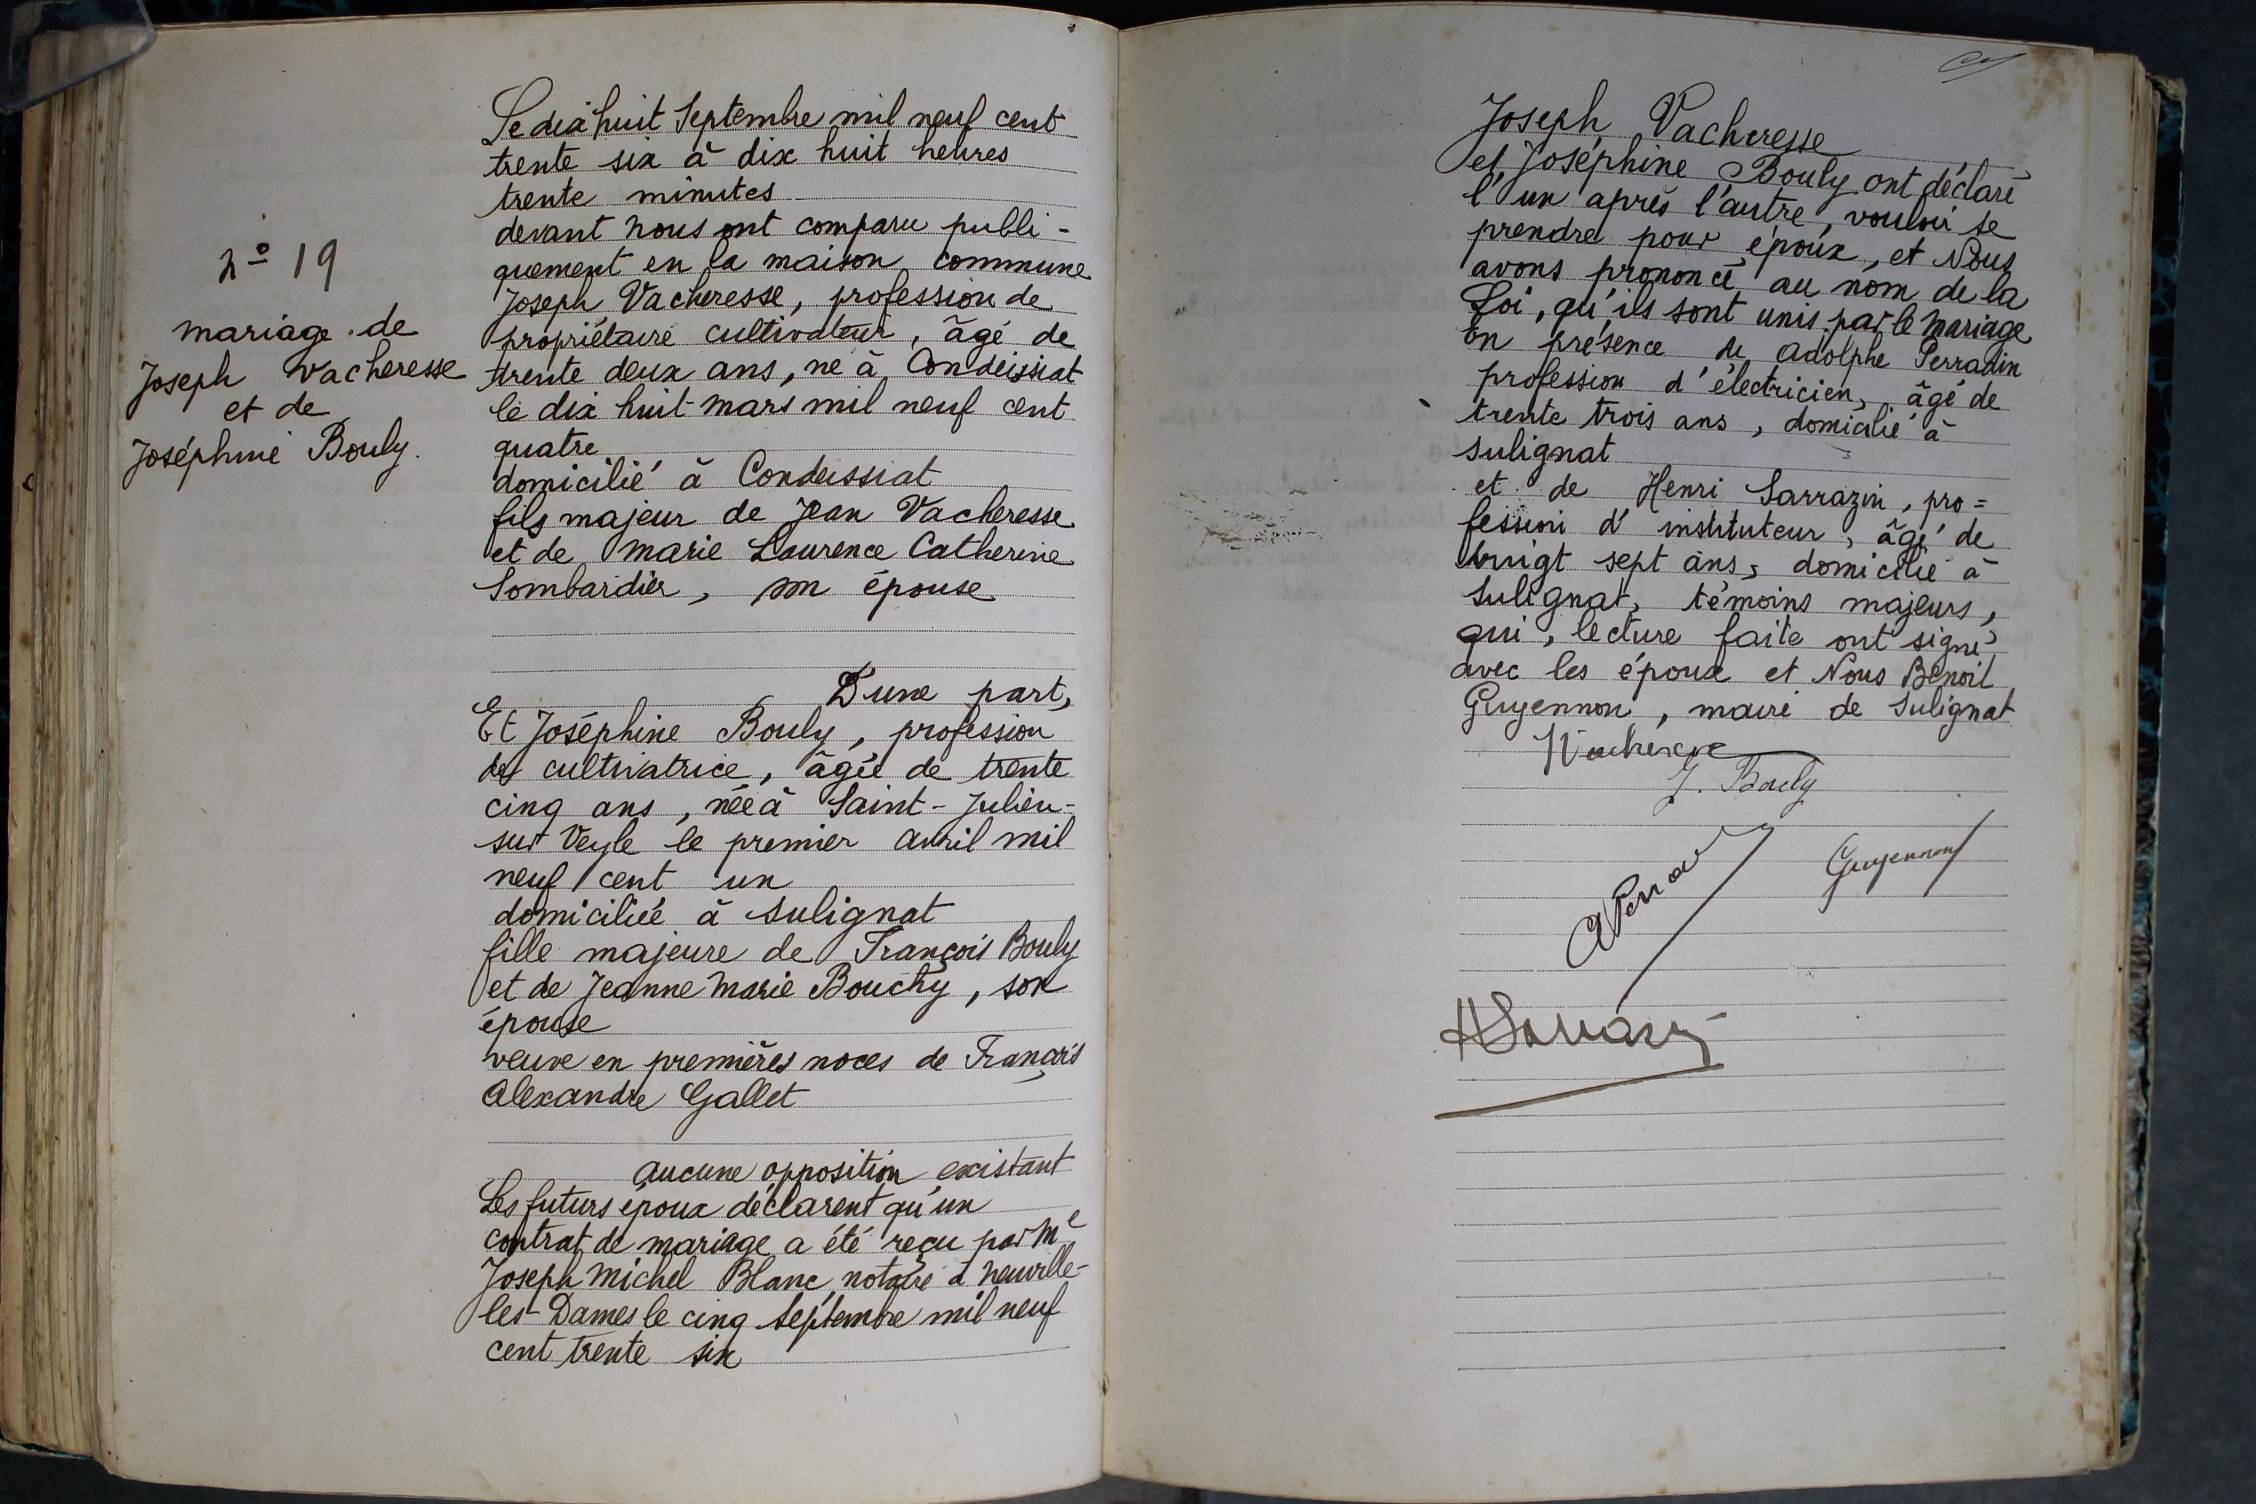 n° 19
mariage de
Joseph Vacheresse
et de
Joséphine Bouly.
Le dix huit Septembre mil neuf cent
trente six à dix huit heures
trente minutes
devant nous ont comparu publi-
quement en la maison commune
Joseph Vacheresse, profession de
propriétaire cultivateur, âgé de
trente deux ans, né à Condeissiat
le dix huit mars mil neuf cent
quatre
domicilié à Condeissiat
fils majeur de Jean Vacheresse
et de Marie Laurence Catherine
Sombardier, son épouse
D'une part,
Et Joséphine Bouly, profession
de cultivatrice, âgée de trente
cinq ans, née à Saint-Julien-
sur Veyle le premier avril mil
neuf cent un
domiciliée à Sulignat
fille majeure de François Bouly
et de Jeanne Marie Bouchy, son
épouse
veuve en premières noces de François
Alexandre Gallet
aucune opposition existant
Les futurs époux déclarent qu'un
contrat de mariage a été reçu par Me
Joseph Michel Blanc notaire à Neuville-
les-Dames le cinq Septembre mil neuf
cent trente six
Joseph Vacheresse
et Joséphine Bouly ont déclaré
l'un après l'autre, vouloir se
prendre pour époux, et Nous
avons prononcé au nom de la
Loi, qu'ils sont unis par le mariage
En présence de Adolphe Perradin
profession d'électricien, âgé de
trente trois ans, domicilié à
Sulignat
et de Henri Sarrazin, pro=
fession d'instituteur, âgé de
vingt sept ans, domicilié à
Sulignat, témoins majeurs,
qui, lecture faite ont signé
avec les époux et Nous Benoit
Guyennon, maire de Sulignat
Vacheresse
J. Bouly
Guyennon
HSarrazin